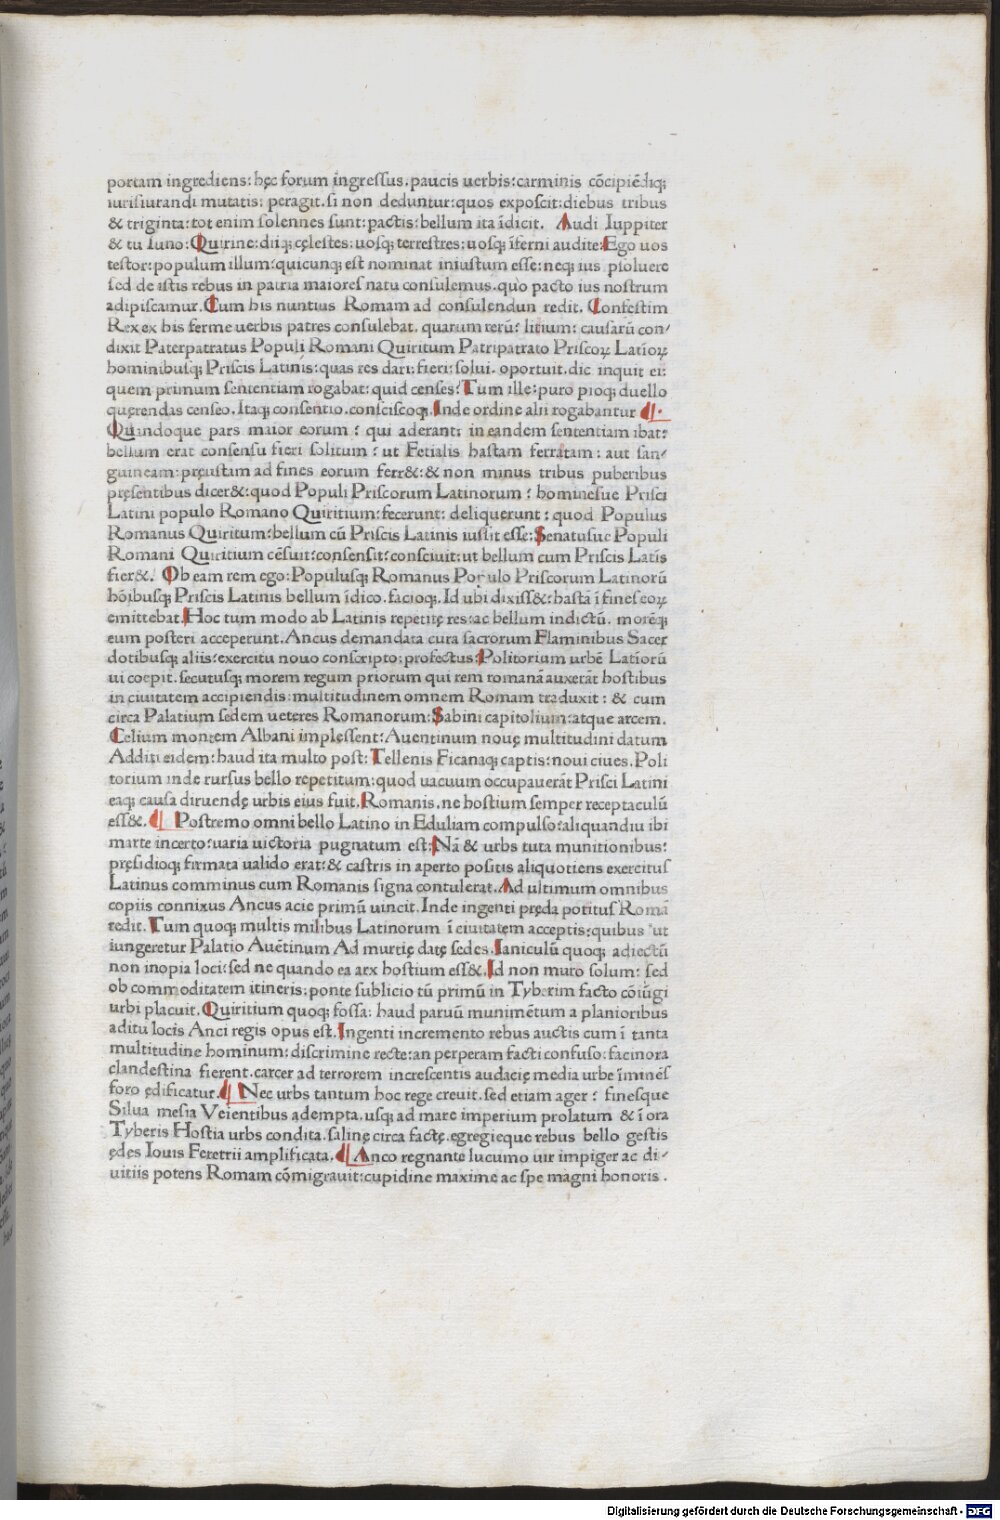 portam ingrediens: hęc forum ingressus. paucis uerbis: carminis cōcipiēdiq;
iurisiurandi mutatis: peragit. si non deduntur: quos exposcit: diebus tribus
& triginta: tot enim solennes sunt: pactis: bellum ita īdicit. Audi Iuppiter
& tu Iuno: Quirine: diiq; cęlestes: uosq; terrestres: uosq; īferni audite: Ego uos
testor: populum illum: quicunq; est nominat iniustum esse: neq; ius psoluere
sed de istis rebus in patria maiores natu consulemus. quo pacto ius nostrum
adipiscamur. Cum his nuntius Romam ad consulendun redit. Confestim
Rex ex his ferme uerbis patres consulebat. quarum rerū: litium: causarū con-
dixit Paterpatratus Populi Romani Quiritum Patripatrato Priscoꝝ Latioꝝ
hominibusq; Priscis Latinis: quas res dari: fieri: solui. oportuit. dic inquit ei:
quem primum sententiam rogabat: quid censes? Tum ille: puro pioq; duello
quęrendas censeo. Itaq; consentio. consciscoq;. Inde ordine alii rogabantur ¶.
Quandoque pars maior eorum: qui aderant: in eandem sententiam ibat:
bellum erat consensu fieri solitum: ut Fetialis hastam ferratam: aut san-
guineam: pręustam ad fines eorum ferr&: & non minus tribus puberibus
pręsentibus dicer&: quod Populi Priscorum Latinorum: hominesue Prisci
Latini populo Romano Quiritium: fecerunt: deliquerunt: quod Populus
Romanus Quiritum: bellum cū Priscis Latinis iussit esse: Senatusue Populi
Romani Quiritium cēsuit: consensit: consciuit: ut bellum cum Priscis Latīs
fier&. Ob eam rem ego: Populusq; Romanus Populo Priscorum Latinorū
hōibusq; Priscis Latinis bellum īdico. facioq;. Id ubi dixiss&: hastā ī fines eoꝝ
emittebat. Hoc tum modo ab Latinis repetitę res: ac bellum indictū. morēq;
eum posteri acceperunt. Ancus demandata cura sacrorum Flaminibus Sacer
dotibusq; aliis: exercitu nouo conscripto: profectus: Politorium urbē Latiorū
ui coepit. secutusq; morem regum priorum qui rem romanā auxerāt hostibus
in ciuitatem accipiendis: multitudinem omnem Romam traduxit: & cum
circa Palatium sedem ueteres Romanorum: Sabini capitolium: atque arcem.
Celium montem Albani implessent: Auentinum nouę multitudini datum
Additi eidem: haud ita multo post: Tellenis Ficanaq; captis: noui ciues. Poli
torium inde rursus bello repetitum: quod uacuum occupauerāt Prisci Latini
eaq; causa diruendę urbis eius fuit. Romanis. ne hostium semper receptaculū
ess&. ¶ Postremo omni bello Latino in Eduliam compulso: aliquandiu ibi
marte incerto: uaria uictoria pugnatum est: Nā & urbs tuta munitionibus:
pręsidioq; firmata ualido erat: & castris in aperto positis aliquotiens exercitus
Latinus comminus cum Romanis signa contulerat. Ad ultimum omnibus
copiis connixus Ancus acie primū uincit. Inde ingenti pręda potitus Romā
redit. Tum quoq; multis milibus Latinorum ī ciuitatem acceptis: quibus ut
iungeretur Palatio Auētinum Ad murtię datę sedes. Ianiculū quoq; adiectū
non inopia loci: sed ne quando ea arx hostium ess&. Id non muro solum: sed
ob commoditatem itineris: ponte sublicio tū primū in Tyberim facto cōiūgi
urbi placuit. Quiritium quoq; fossa: haud paruū munimētum a planioribus
aditu locis Anci regis opus est. Ingenti incremento rebus auctis cum ī tanta
multitudine hominum: discrimine recte: an perperam facti confuso: facinora
clandestina fierent. carcer ad terrorem increscentis audacię media urbe īminēs
foro ędificatur. ¶ Nec urbs tantum hoc rege creuit. sed etiam ager: finesque
Silua mesia Veientibus adempta. usq; ad mare imperium prolatum & ī ora
Tyberis Hostia urbs condita. salinę circa factę. egregieque rebus bello gestis
ędes Iouis Feretrii amplificata. ¶ Anco regnante lucumo uir impiger ac di-
uitiis potens Romam cōmigrauit: cupidine maxime ac spe magni honoris.
Digitalisierung gefördert durch die Deutsche Forschungsgemeinschaft - DFG